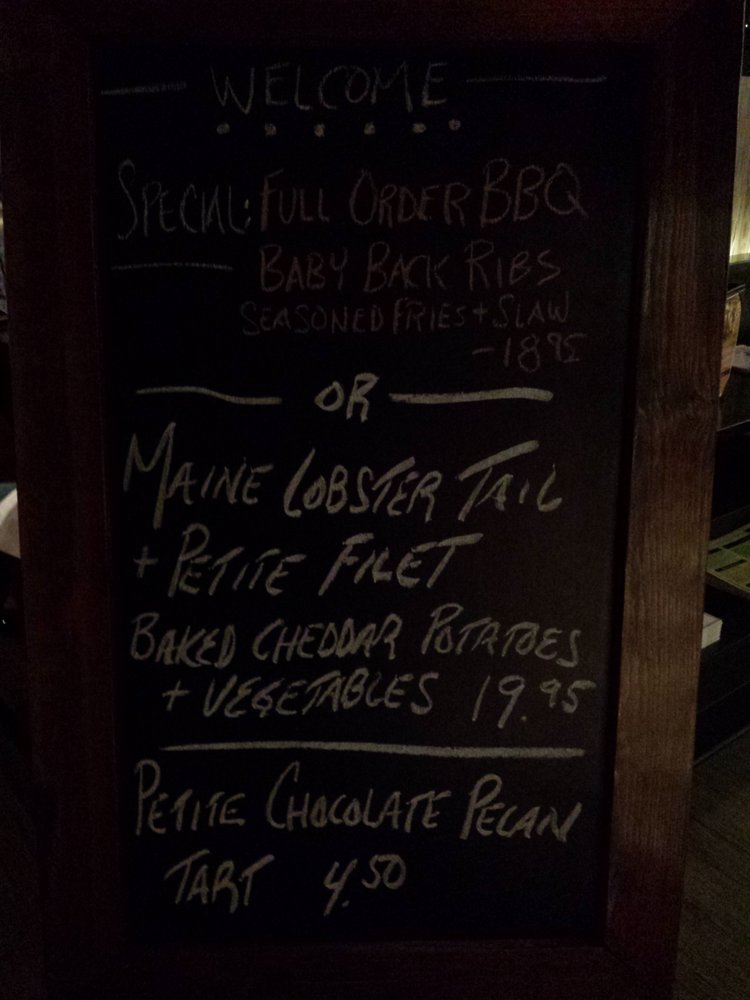 WELCOME
SPECIAL: FULL ORDER BBQ
BABY BACK RIBS
SEASONED FRIES + SLAW
- 18 95
OR
MAINE LOBSTER TAIL
+ PETITE FILET
BAKED CHEDDAR POTATOES
+ VEGETABLES 19.95
PETITE CHOCOLATE PECAN
TART 4.50